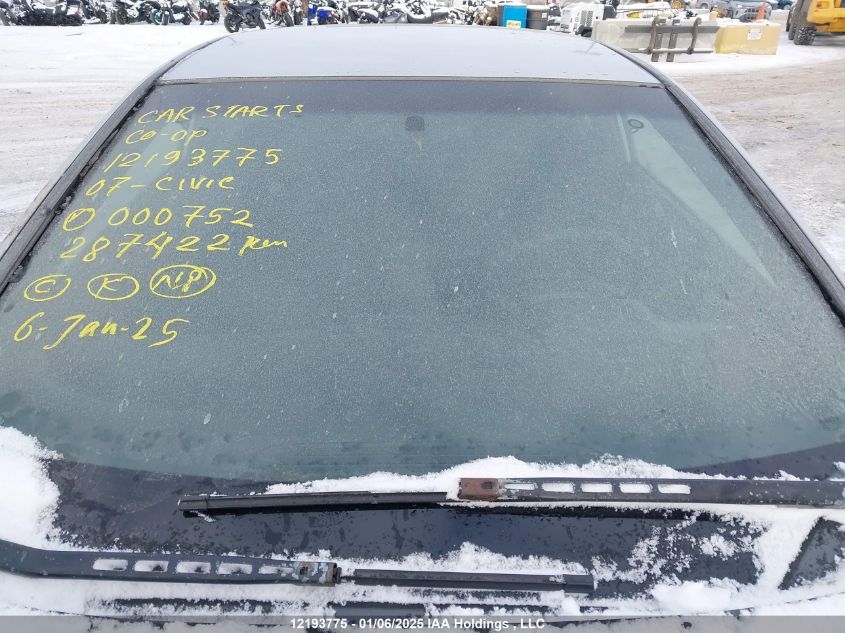 CAR STARTS
CO-OP
12193775
07-CIVIC
000752
287422 km
C K NP
6-Jan-25
12193775 - 01/06/2025 IAA Holdings, LLC